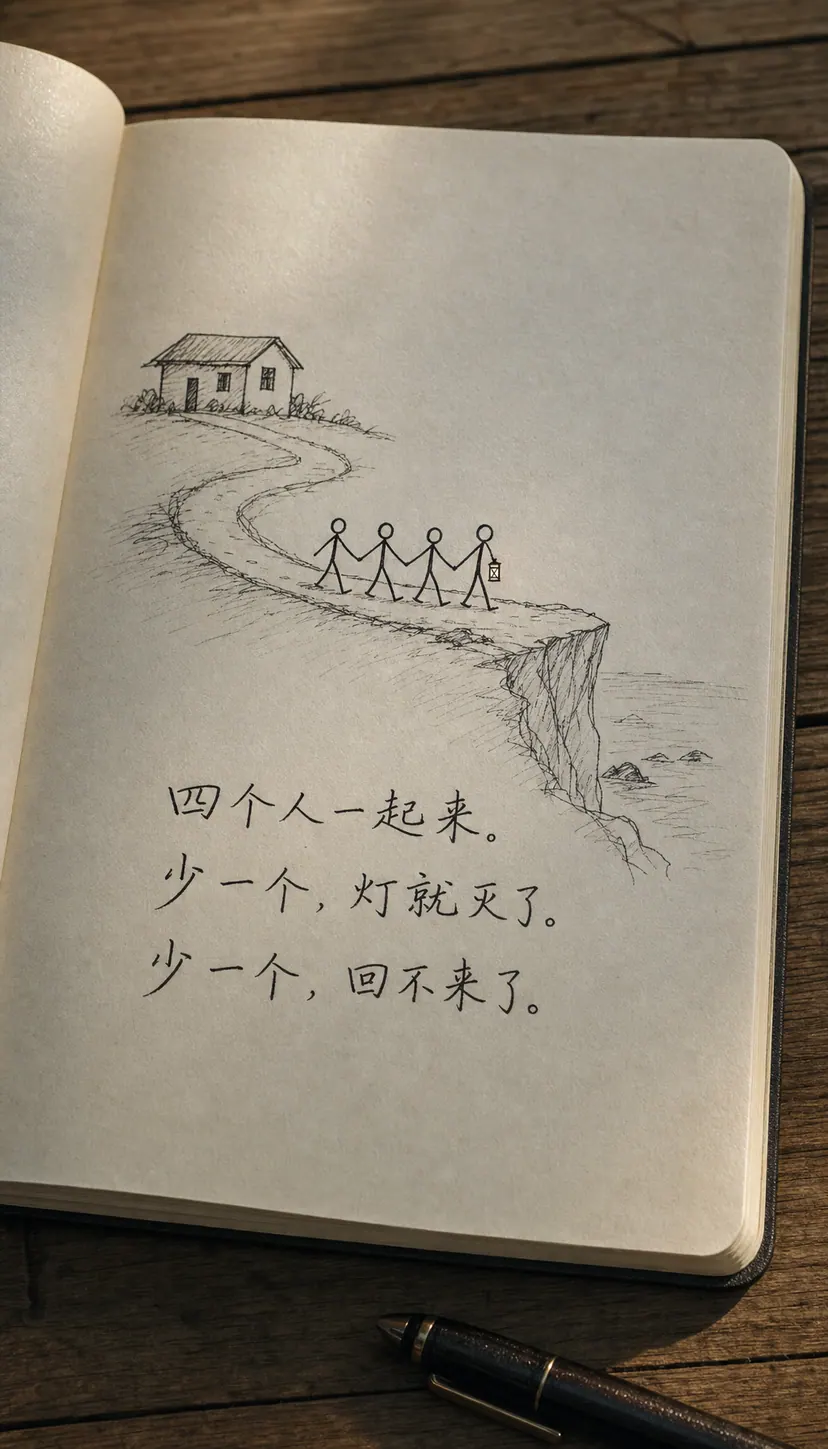 四个人一起来。
少一个，灯就灭了。
少一个，回不来了。